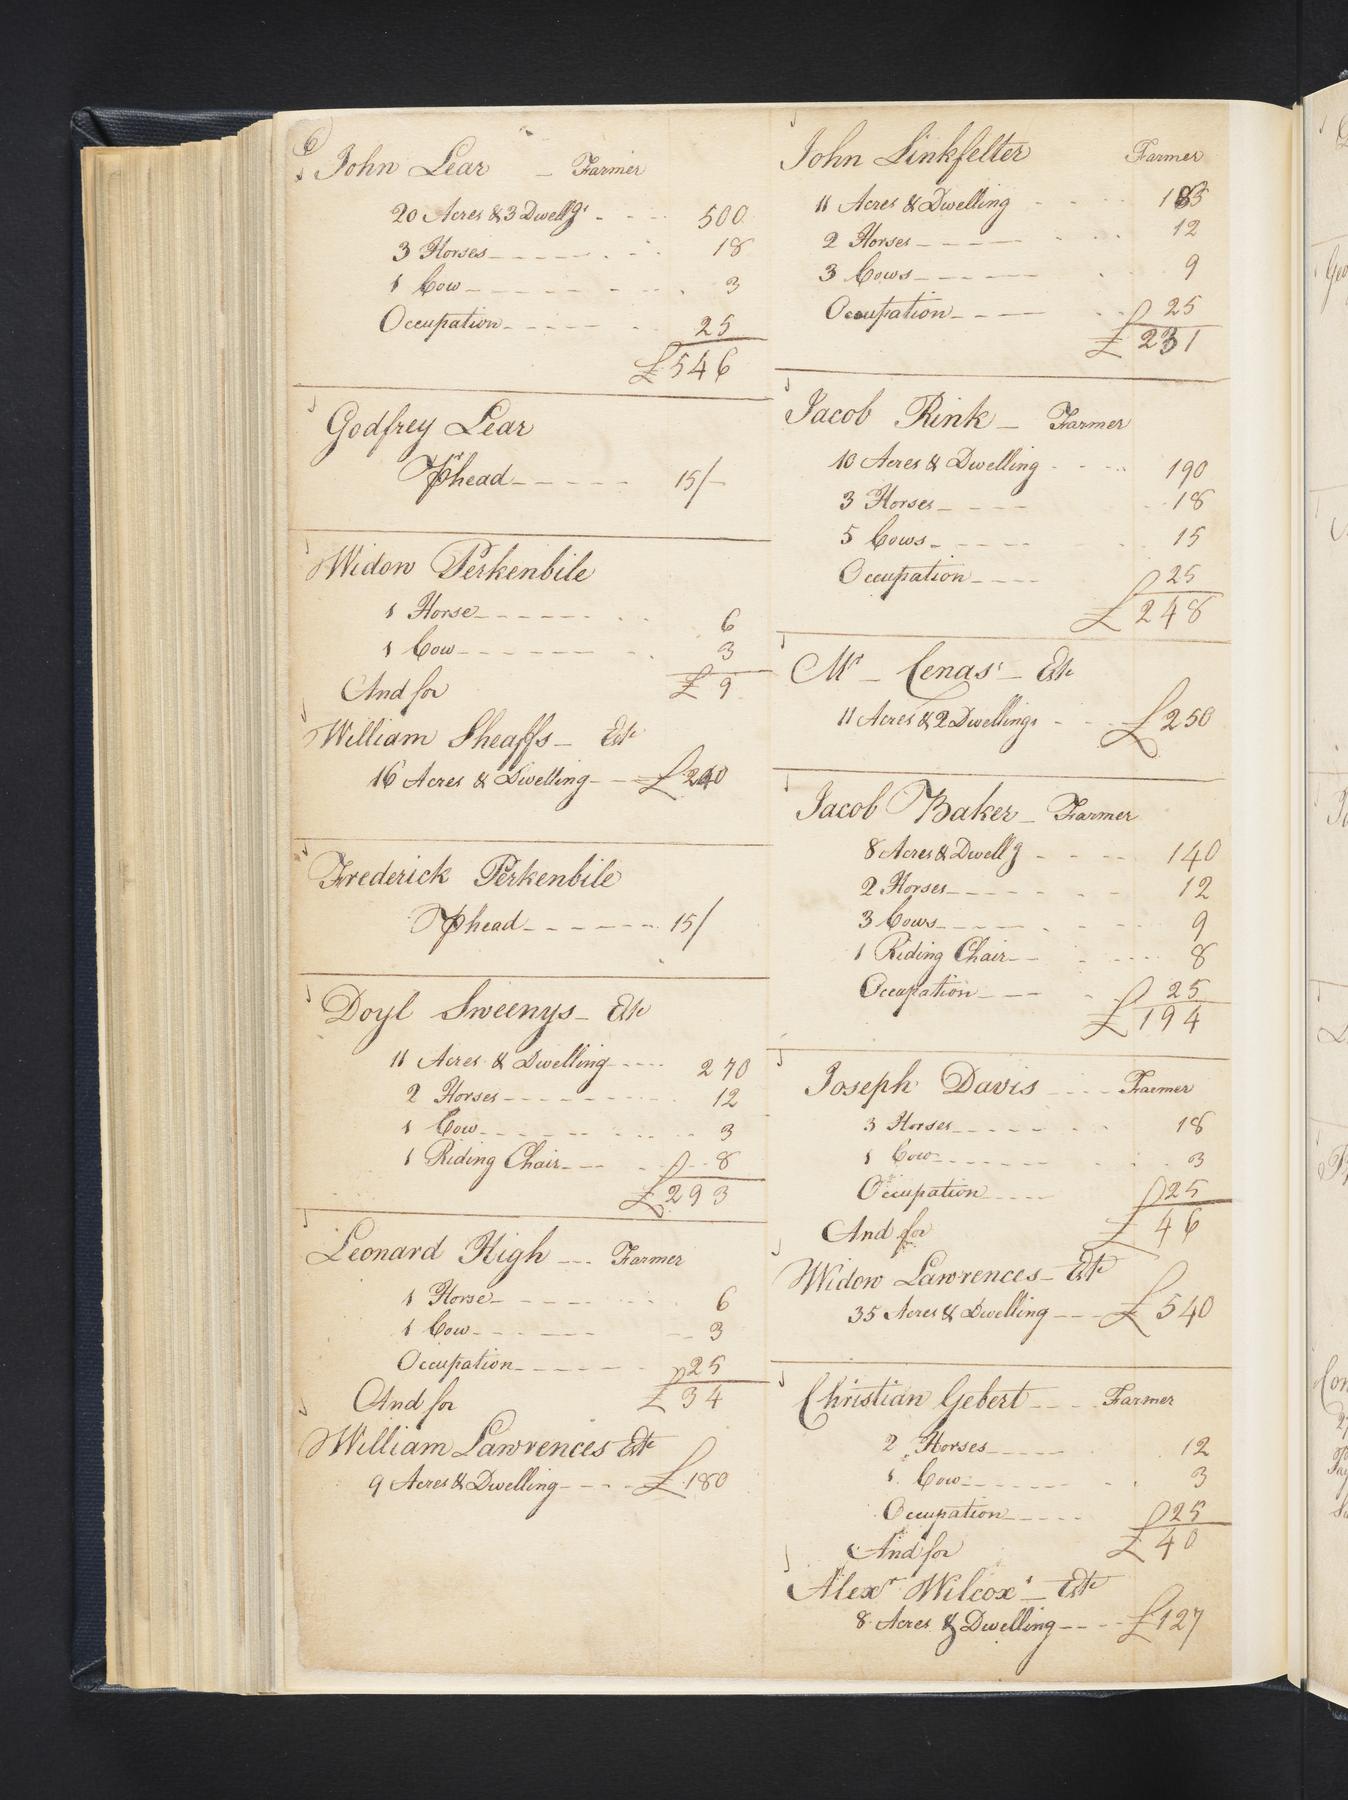 6
John Lear - Farmer
20 Acres & 3 Dwellgs 500
3 Horses 18
1 Cow 3
Occupation 25
£546
Godfrey Lear
Pr head 15/
Widow Perkenbile
1 Horse 6
1 Cow 3
And for £9
William Sheaffs - Este
16 Acres & Dwelling £240
Frederick Perkenbile
Pr head 15/
Doyl Sweenys - Este
11 Acres & Dwelling 270
2 Horses 12
1 Cow 3
1 Riding Chair 8
£293
Leonard High Farmer
1 Horse 6
1 Cow 3
Occupation 25
And for £34
William Lawrences Este
9 Acres & Dwelling £180
John Linkfelter Farmer
11 Acres & Dwelling 185
2 Horses 12
3 Cows 9
Occupation 25
£231
Jacob Rink - Farmer
10 Acres & Dwelling 190
3 Horses 18
5 Cows 15
Occupation 25
£248
Mr - Cenas' - Este
11 Acres & 2 Dwellings £250
Jacob Baker - Farmer
8 Acres & Dwellg 140
2 Horses 12
3 Cows 9
1 Riding Chair 8
Occupation 25
£194
Joseph Davis Farmer
3 Horses 18
1 Cow 3
Occupation 25
And for £46
Widow Lawrences - Este
35 Acres & Dwelling £540
Christian Gebert Farmer
2 Horses 12
1 Cow 3
Occupation 25
And for £40
Alexr Wilcox's - Este
8 Acres & Dwelling £127